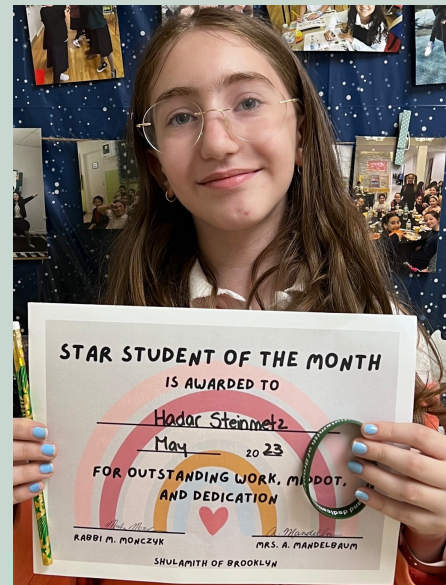 STAR STUDENT OF THE MONTH
IS AWARDED TO
Hadar Steinmetz
May 2023
FOR OUTSTANDING WORK, MIDDOT,
AND DEDICATION
and dedica
A. Mandelbaum
RABBI M. MONCZYK
MRS. A. MANDELBAUM
SHULAMITH OF BROOKLYN